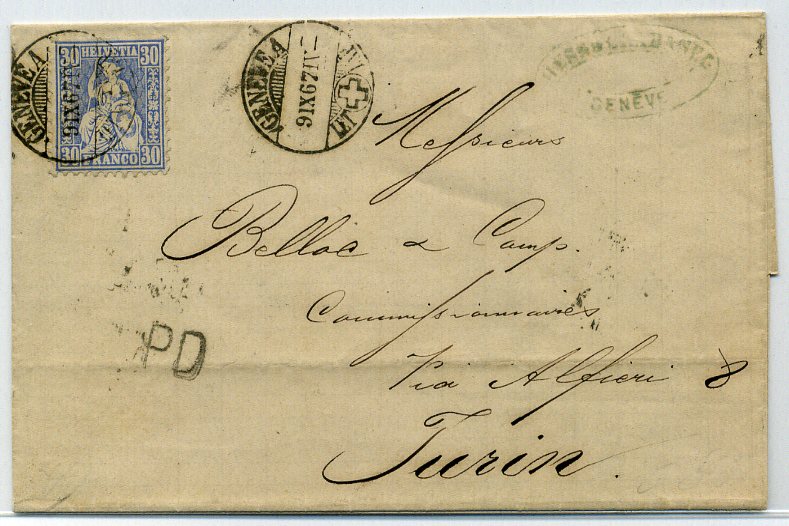 30 HELVETIA 30
30 FRANCO 30
GENEVE A
9 IX 67 IV
GENEVE A
9 IX 67 IV
GENÈVE
Messieurs
Belloc & Comp.
Commissionnaires
Via Alfieri 8
Turin.
PD